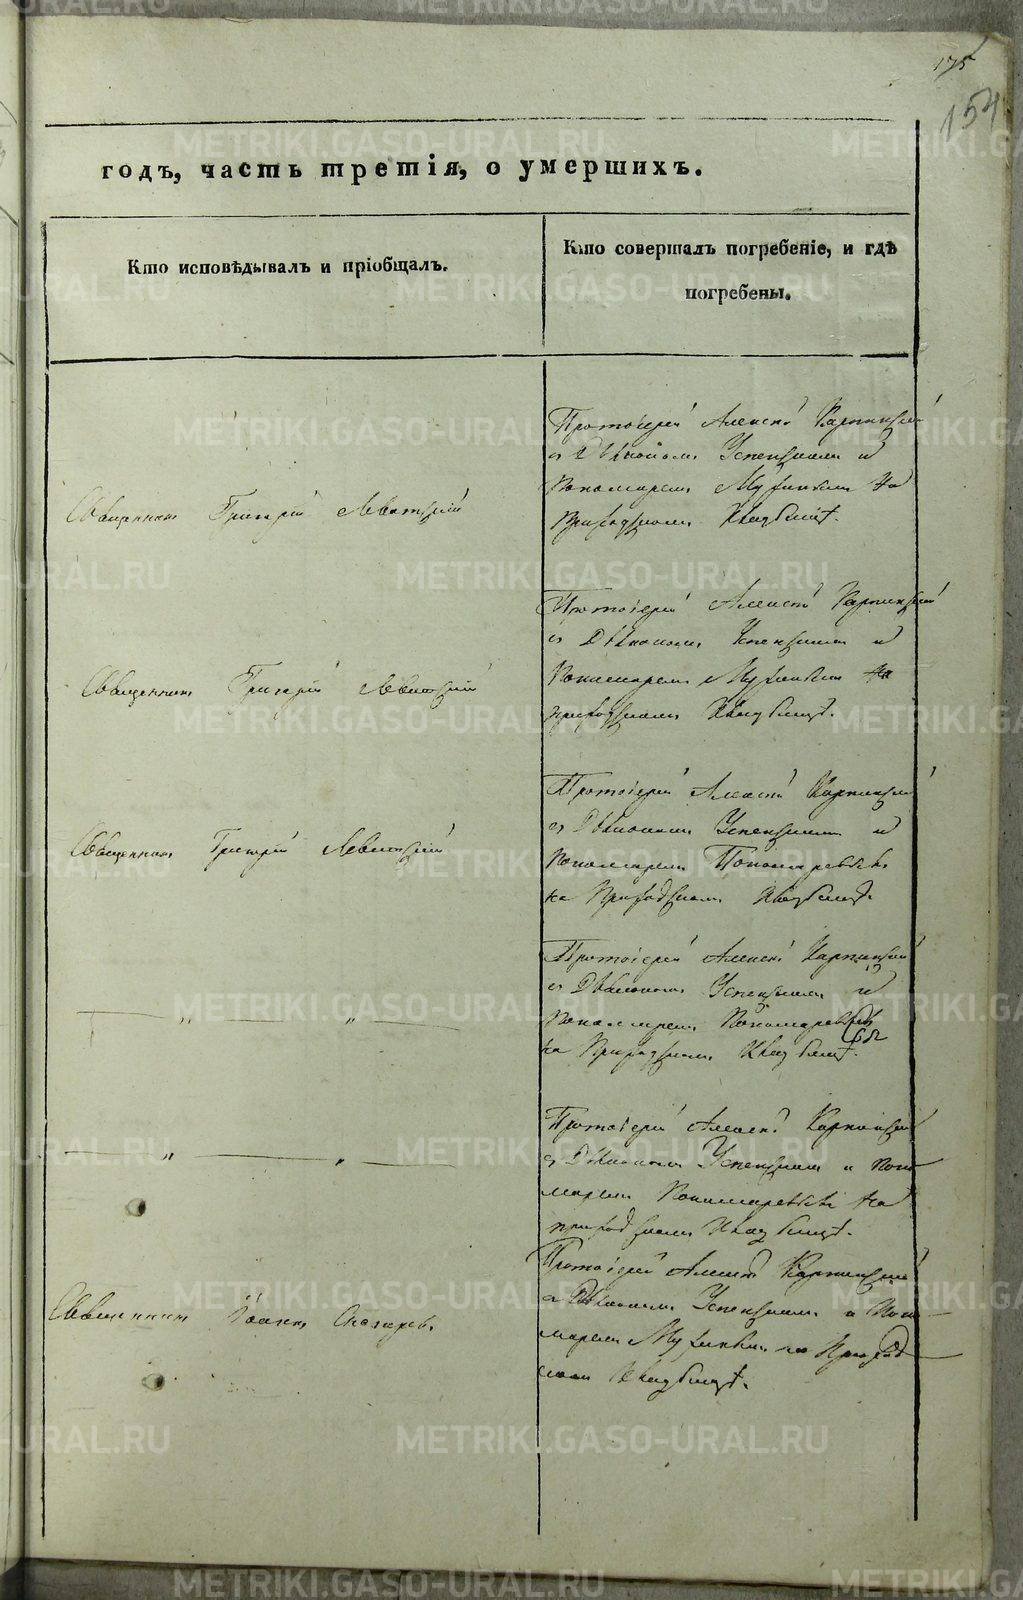 175
154
годъ, часть третія, о умершихъ.
Кто исповѣдывалъ и пріобщалъ.
Кто совершалъ погребеніе, и гдѣ
погребены.
Протоіерей Алексѣй Карпинскій
съ Діакономъ Успенскимъ и
Пономаремъ на
Священникъ Григорій Левитскій
Приходскомъ Кладбищѣ.
Протоіерей Алексѣй Карпинскій
съ Діакономъ Успенскимъ и
Священникъ Григорій Левитскій
Пономаремъ на
приходскомъ Кладбищѣ.
Протоіерей Алексѣй Карпинскій
съ Діакономъ Успенскимъ и
Священникъ Григорій Левитскій
Пономаремъ Пономаревымъ
на Приходскомъ Кладбищѣ.
Протоіерей Алексѣй Карпинскій
съ Діакономъ Успенскимъ и
— „ — „ —
Пономаремъ Пономаревымъ
на Приходскомъ Кладбищѣ.
Протоіерей Алексѣй Карпинскій
— „ — „ —
съ Діакономъ Успенскимъ и Поно-
маремъ Пономаревымъ на
приходскомъ Кладбищѣ.
Протоіерей Алексѣй Карпинскій
съ Діакономъ Успенскимъ и Поно-
Священникъ Іоаннъ
маремъ на Приход-
скомъ Кладбищѣ.
METRIKI.GASO-URAL.RU